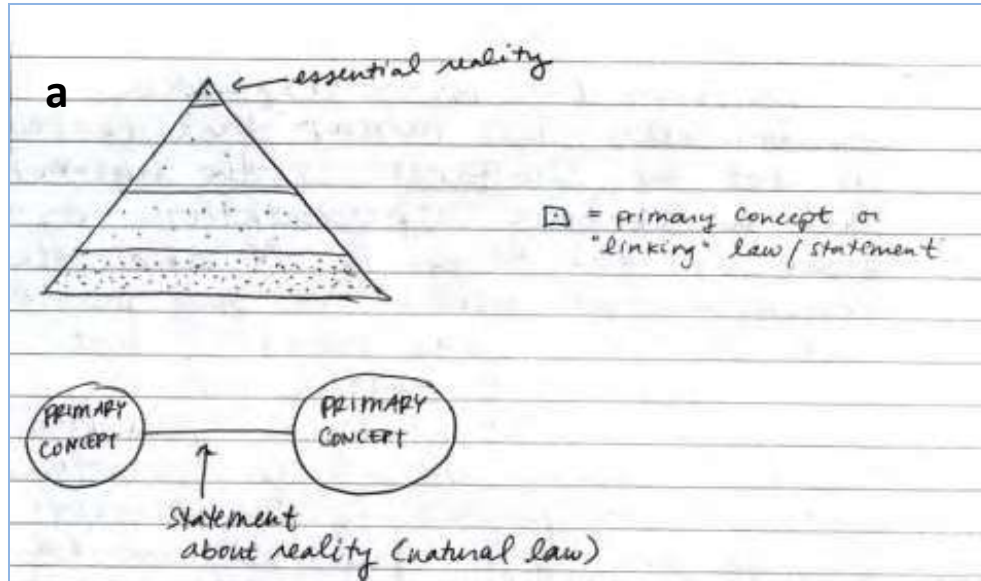 a
essential reality
⊡ = primary concept or
"linking" law/statement
PRIMARY
CONCEPT
PRIMARY
CONCEPT
statement
about reality (natural law)